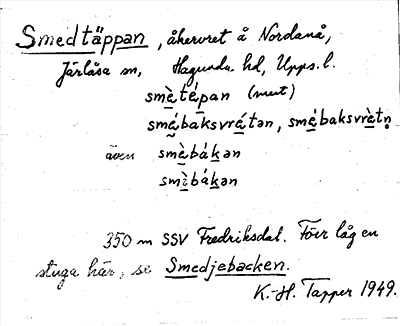 Smedtäppan, åkervret å Nordanå,
Järlåsa sn, Hagunda hd, Upps. l.
smè̱té̱pan (mut)
smé̱baksvré̱tən, smé̱baksvrè̱tn̥
även smè̱bákən
smì̱bákən
350 m SSV Fredriksdal. Förr låg en
stuga här, se Smedjebacken.
K.-H. Tapper 1949.